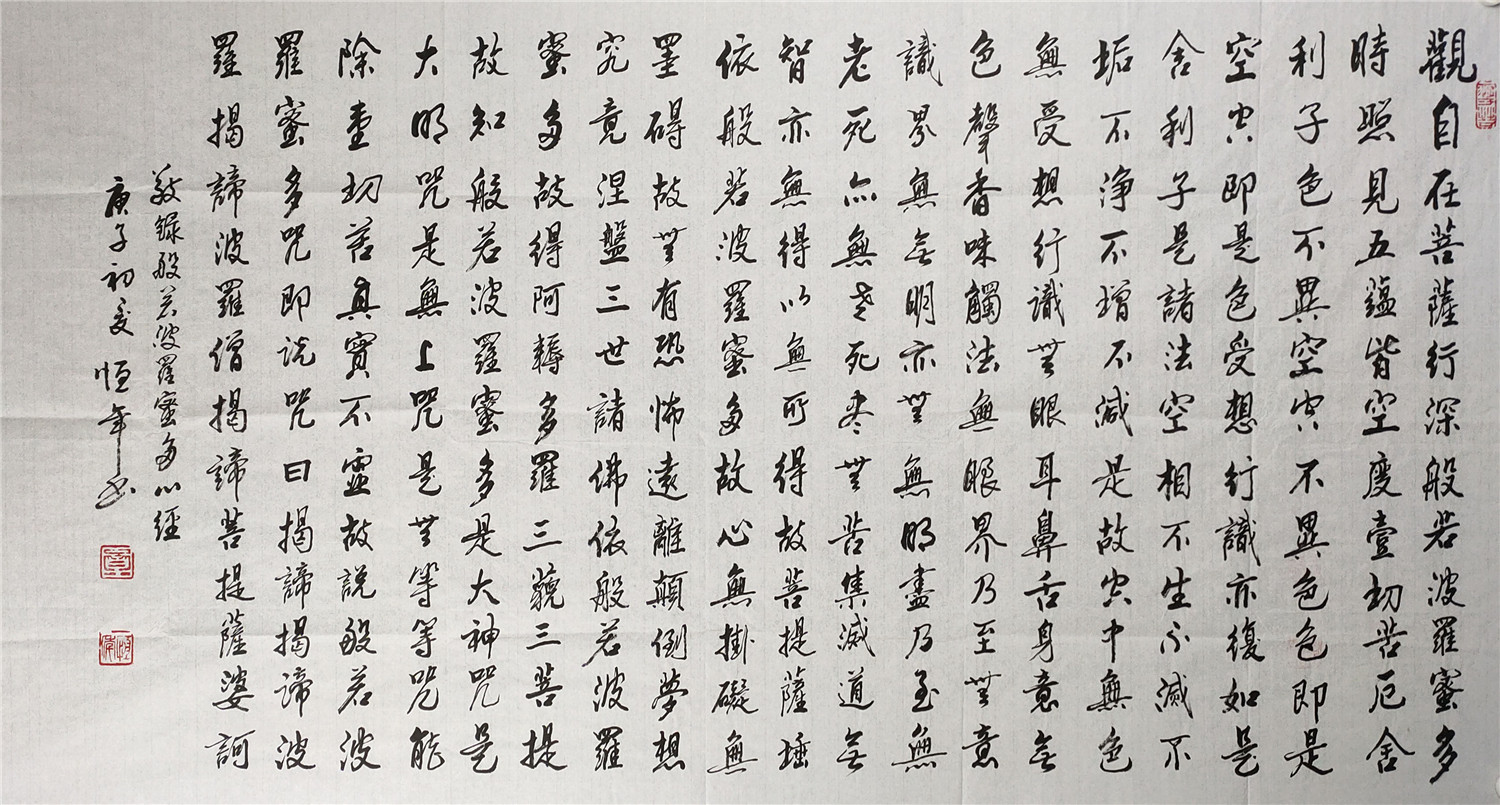 觀自在菩薩行深般若波羅蜜多
時照見五蘊皆空度壹切苦厄舍
利子色不異空空不異色色即是
空空即是色受想行識亦復如是
舍利子是諸法空相不生不滅不
垢不淨不增不減是故空中無色
無受想行識無眼耳鼻舌身意無
色聲香味觸法無眼界乃至無意
識界無無明亦無無明盡乃至無
老死亦無老死盡無苦集滅道無
智亦無得以無所得故菩提薩埵
依般若波羅蜜多故心無掛礙無
罣碍故無有恐怖遠離顛倒夢想
究竟涅盤三世諸佛依般若波羅
蜜多故得阿耨多羅三藐三菩提
故知般若波羅蜜多是大神咒是
大明咒是無上咒是無等等咒能
除壹切苦真實不虛故說般若波
羅蜜多咒即说咒曰揭諦揭諦波
羅揭諦波羅僧揭諦菩提薩婆訶
敬錄般若波羅蜜多心經
庚子初夏恒年书